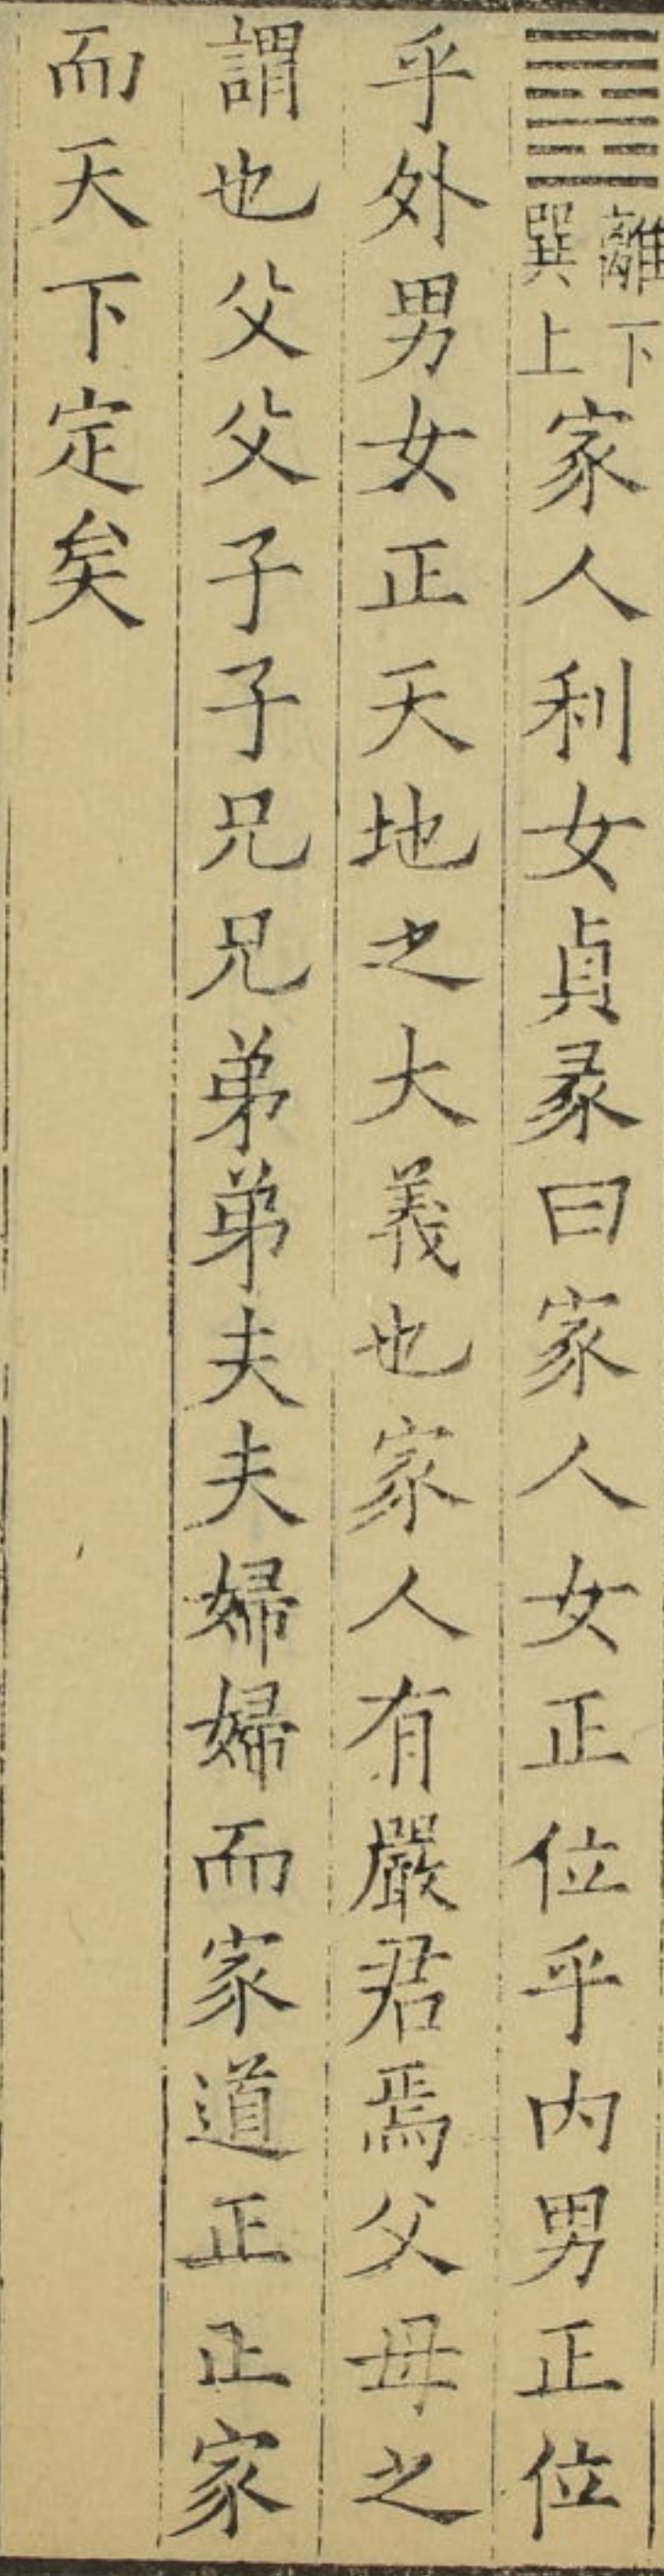 ䷤離下巽上家人利女貞彖曰家人女正位乎内男正位
乎外男女正天地之大義也家人有嚴君焉父母之
謂也父父子子兄兄弟弟夫夫婦婦而家道正正家
而天下定矣